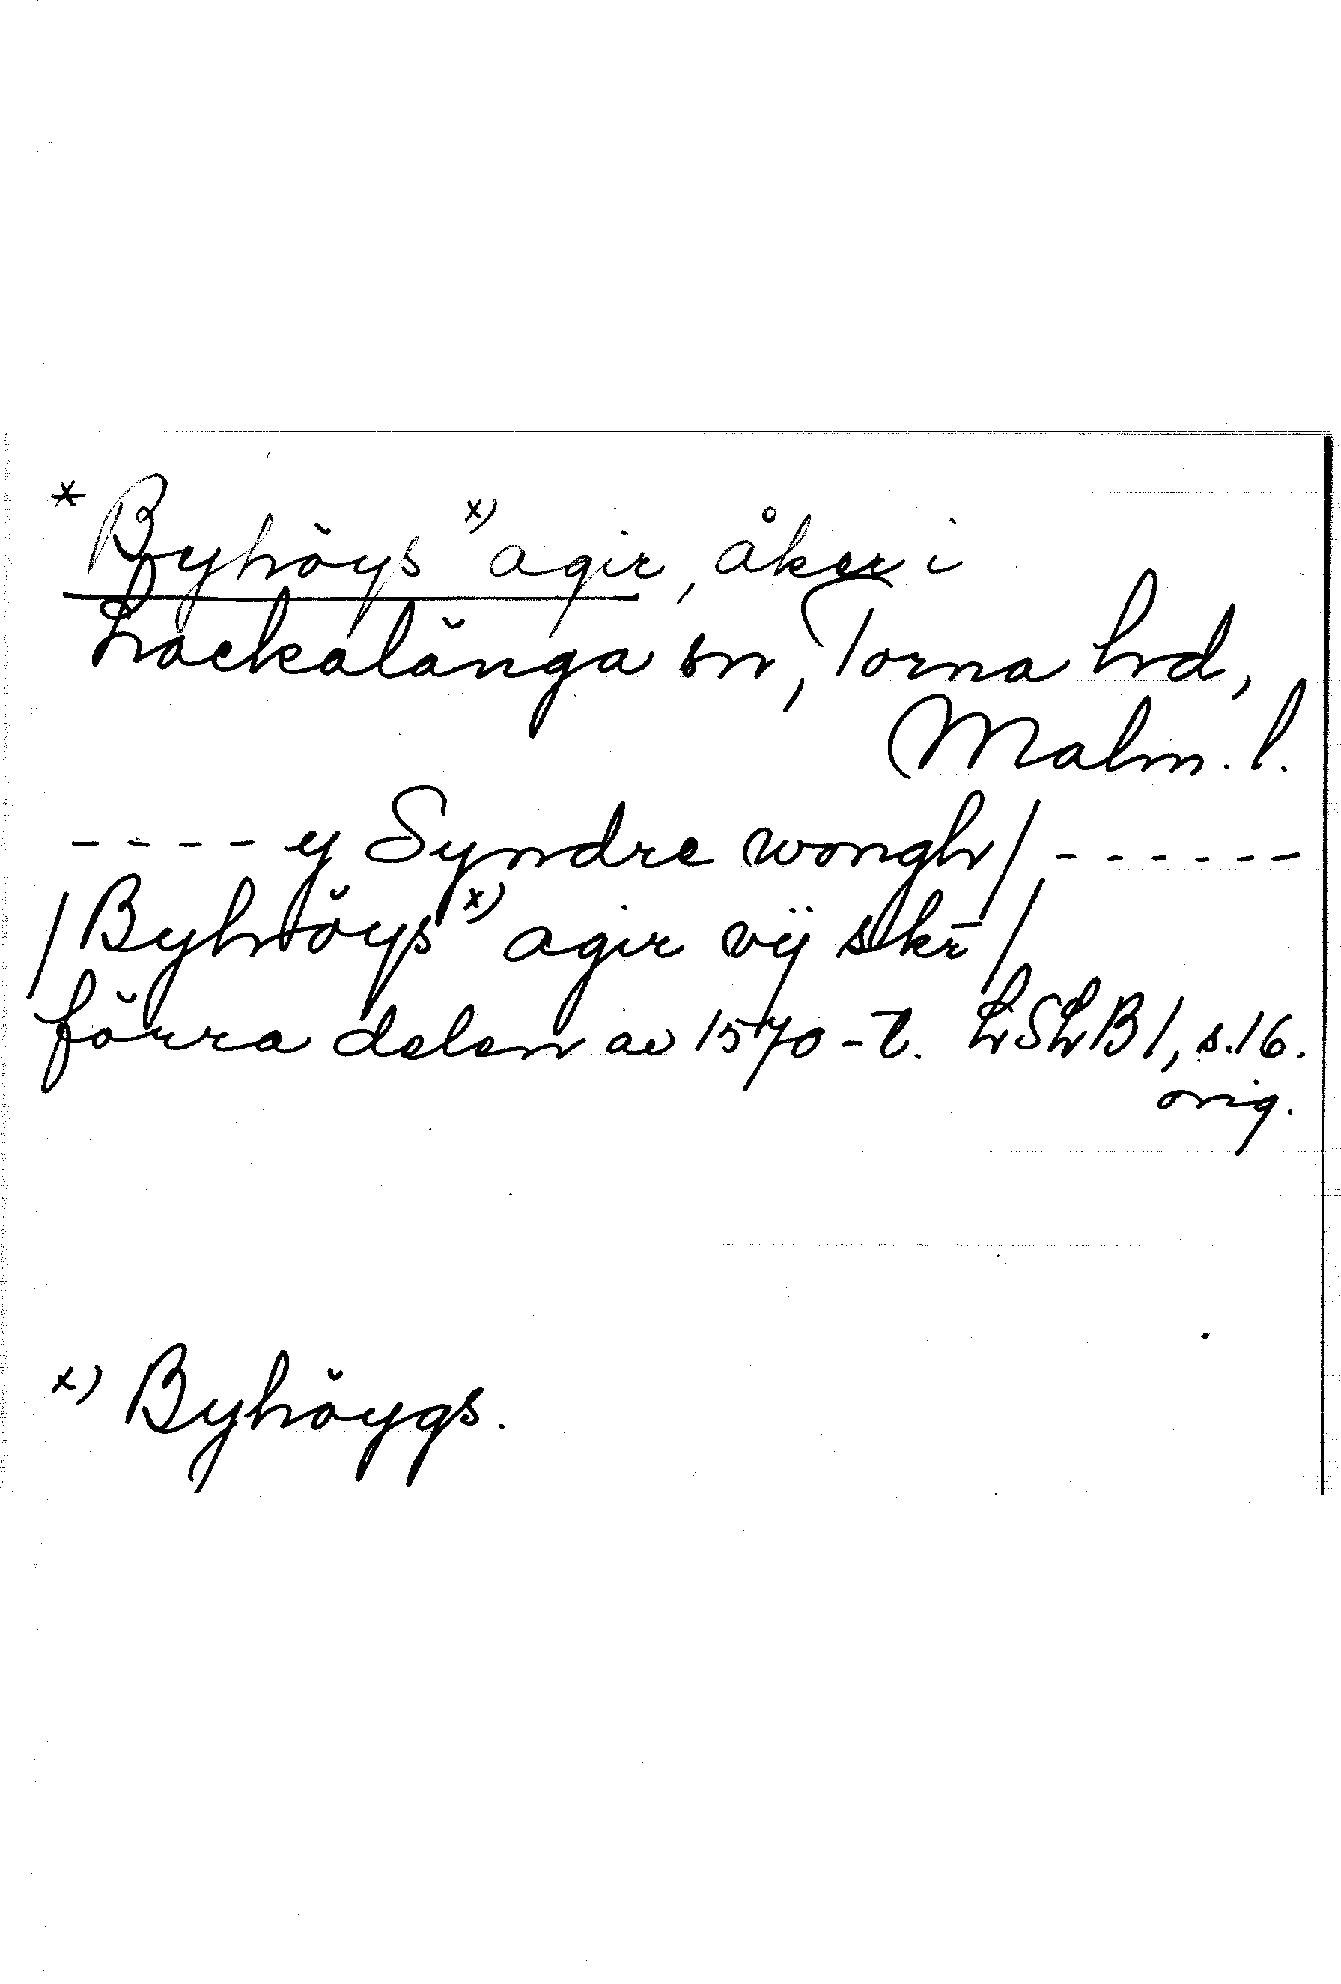 * Byhöys x) agir, åker i
Lackalänga sn, Torna hd,
Malm. l.
- - - - ey Syndre wongh/ - - - - - -
/Byhöys x) agir vij skr̄/
förra delen av 1570-t. LSLB 1, s.16.
orig.
x) Byhöygs.